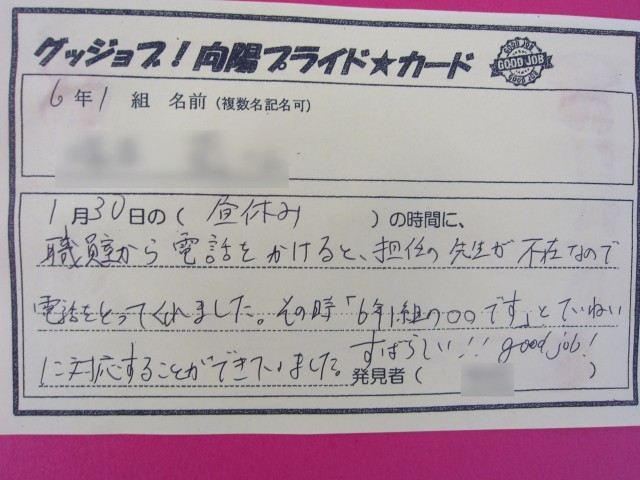 グッジョブ！向陽プライド★カード
GOOD JOB
GOOD JOB
GOOD JOB
6年1組 名前（複数名記名可）
1月30日の（ 昼休み ）の時間に、
職員室から電話をかけると、担任の先生が不在なので
電話をとってくれました。その時「6年1組の〇〇です」とていねい
に対応することができていました。すばらしい!! good job!
発見者（ ）